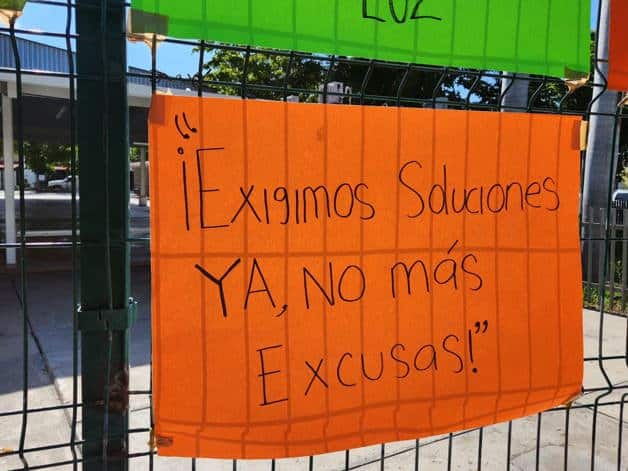 LUZ
"¡Exigimos Soluciones
YA, NO más
Excusas!"